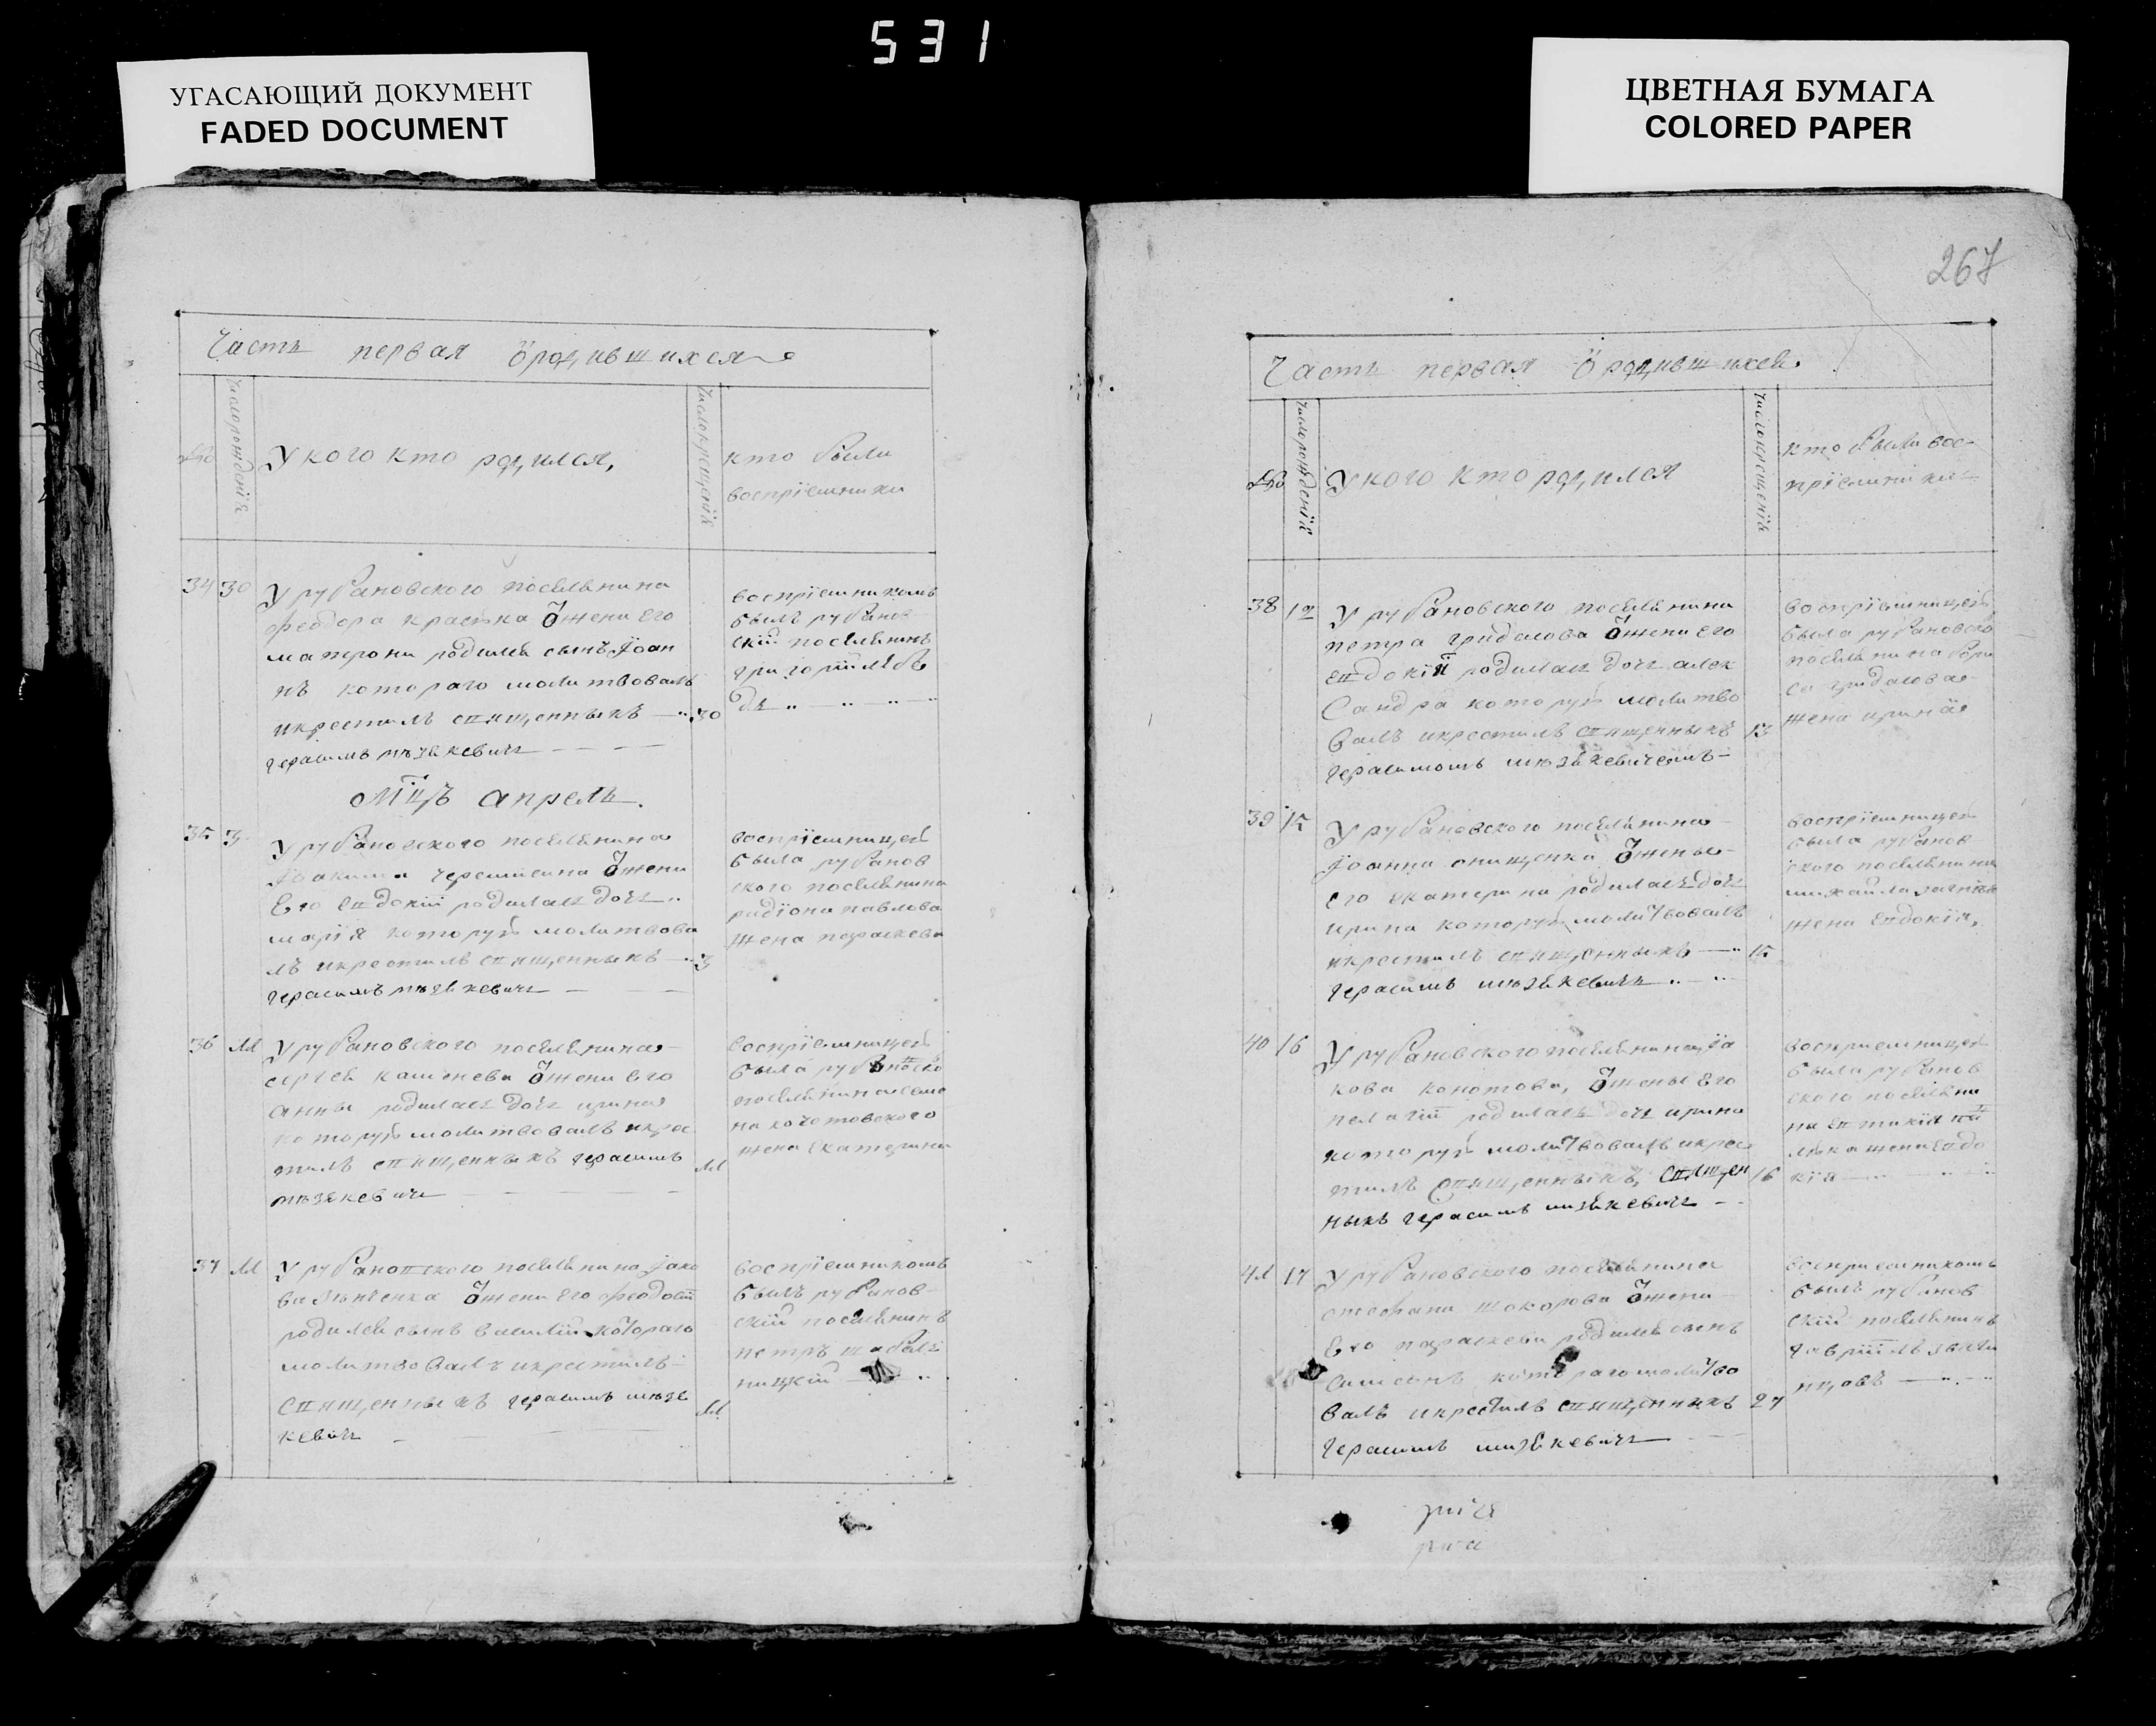 531
УГАСАЮЩИЙ ДОКУМЕНТ
FADED DOCUMENT
ЦВЕТНАЯ БУМАГА
COLORED PAPER
Часть первая ѿ родившихся
№
Число рождения
У кого кто родился,
Число крещения
кто были
восприемники
34 30
У рубановского поселянина
феодора краська ѿ жени его
матрони родился сынъ Іоан
нъ котораго молитвовалъ
и крестилъ священникъ 30
герасимъ мѣзѣкевичь
восприемникомъ
былъ рубанов
скій поселянинъ
григорій лѣбе
дь
Мцъ апрель.
35 3
У рубановского поселянина
Іоакима черемисина ѿ жени
его евдокіи родилась дочь
марія которую молитвова
лъ и крестилъ священникъ 3
герасимъ мѣзѣкевичь
восприемницею
была рубанов
ского поселянина
радіона павлова
жена параскева
36 11
У рубановского поселянина
сергея каменева ѿ жени его
анны родилась дочь ирина
которую молитвовалъ и крес
тилъ священникъ герасимъ 11
мѣзѣкевичь
восприемницею
была рубановско
поселянина семе
на кочотовского
жена екатерина
37 11
У рубановского поселянина Яко
ва ѿ жени его феодосіи
родился сынъ василій котораго
молитвовалъ и крестилъ
священникъ герасимъ мѣзѣ 11
кевичь
восприемникомъ
былъ рубанов
скій поселянинъ
петръ шабель
ницкій
267
Часть первая ѿ родившихся
№
Число рождения
У кого кто родился
Число крещения
кто были вос
приемники
38 12
У рубановского поселянина
петра гридасова ѿ жени его
евдокіи родилась дочь алек
сандра которую молитво
валъ и крестилъ священникъ 13
герасимомъ мѣзѣкевичемъ
восприемницею
была рубановско
поселянина бори
са гридасова
жена ирина
39 15
У рубановского поселянина
Іоанна онищенка ѿ жены
его екатерини родилась дочь
ирина которую молитвовалъ
и крестилъ священникъ 15
герасимъ мѣзѣкевичь
восприемницею
была рубанов
ского поселянина
михаила
жена евдокія,
40 16
У рубановского поселянина Iа
кова конотова, ѿ жены его
пелагіи родилась дочь ирина
которую молитвовалъ и крес
тилъ священникъ, священ 16
никъ герасимъ мизѣкевичь
восприемницею
была рубанов
ского поселяни
на
жена евдо
кія
41 17
У рубановского поселянина
стефана шокорова ѿ жени
его параскеви родился сынъ
симеонъ котораго молитво
валъ и крестилъ священникъ 27
герасимъ мизѣкевичь
восприемникомъ
былъ рубанов
скій поселянинъ
гавріилъ